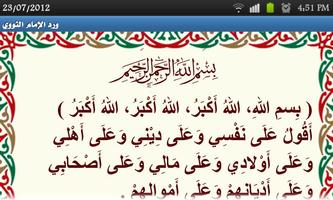 23/07/2012 4:51 PM
ورد الإمام النووي
بِسْمِ اللهِ الرَّحْمٰنِ الرَّحِيْمِ
( بِسمِ اللهِ، اللهُ أَكْبَرُ، اللهُ أَكْبَرُ، اللهُ أَكْبَرُ )
أَقُولُ عَلَى نَفْسِي وَعَلَى دِيْنِي وَعَلَى أَهْلِي
وَعَلَى أَوْلَادِي وَعَلَى مَالِي وَعَلَى أَصْحَابِي
وَعَلَى أَدْيَانِهِمْ وَعَلَى أَمْوَالِهِمْ